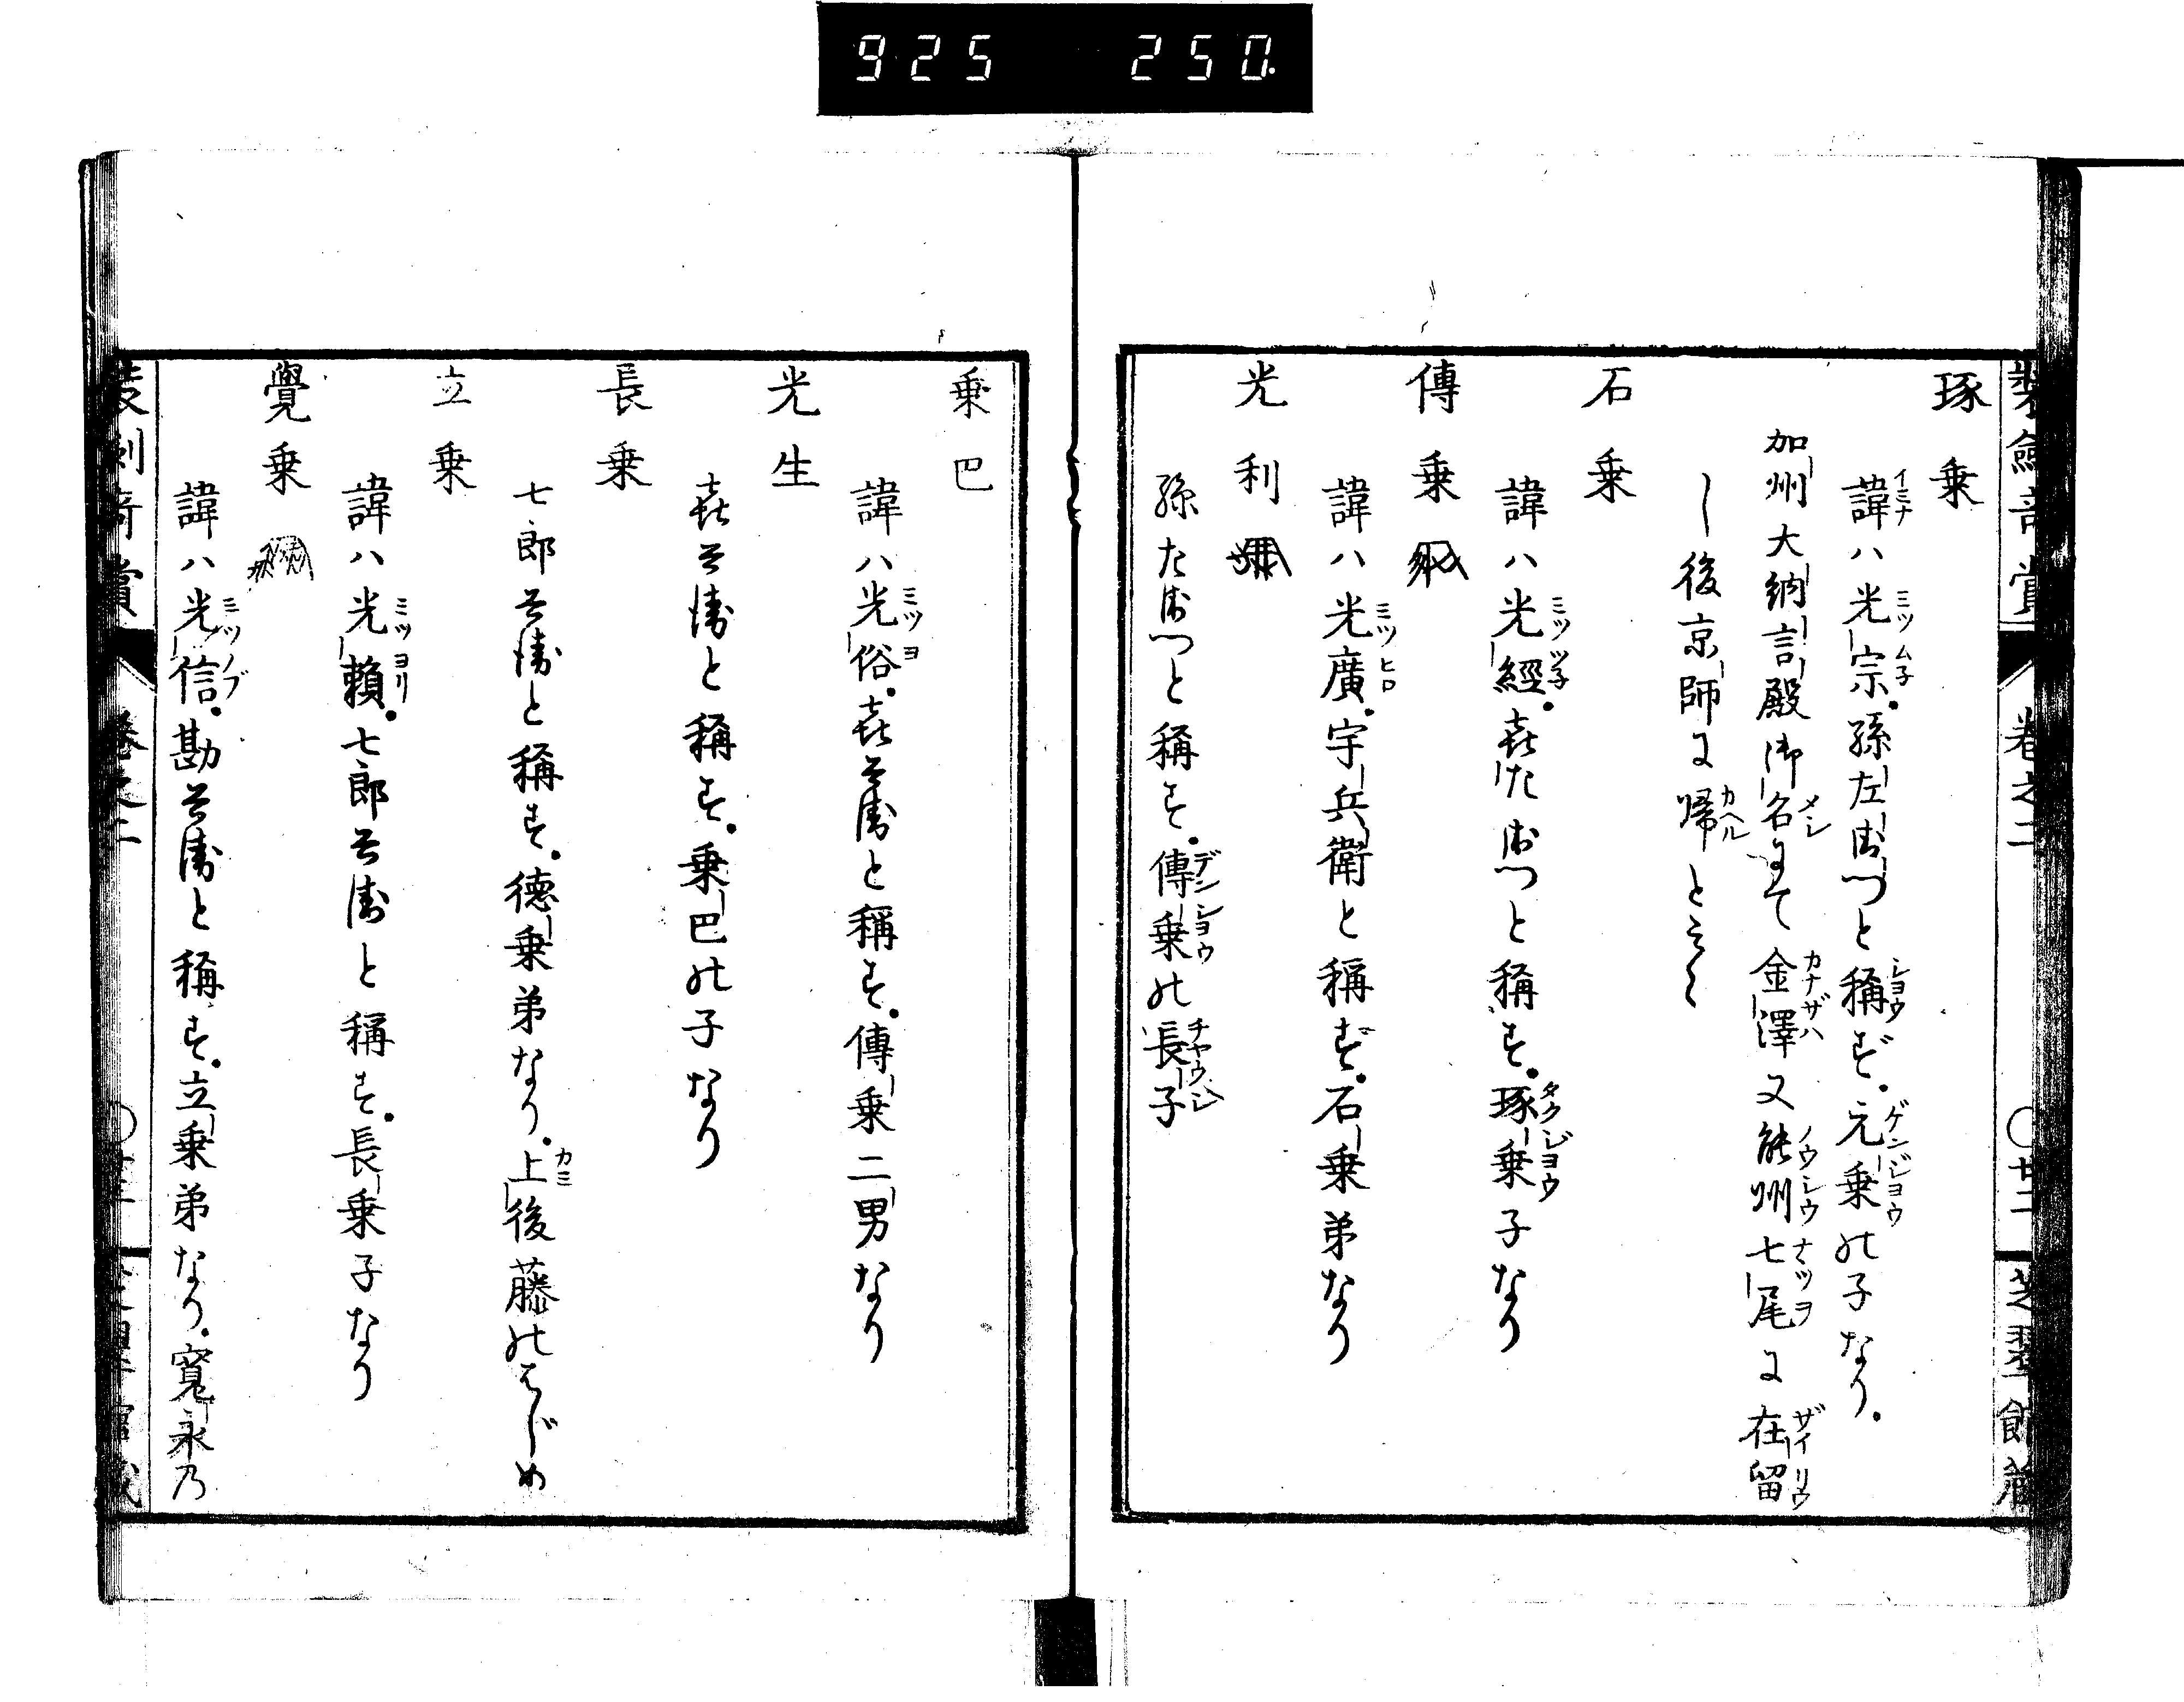 925 250
裝劔竒賞 卷之二 ○廿二 芝翠館藏
琢乗
諱ハ光宗。孫左衛門と稱ず。元乗の子なり。
加州大納言殿御名にて金澤又能州七尾に在留
し後京師に帰といふ
石乗
諱ハ光經。㐂左衛門と稱す。琢乗子なり
傳乗
諱ハ光廣。宇兵衛と稱ず。石乗弟なり
光利
孫左衛門と稱す。傳乗の長子
乗巴
諱ハ光俗。㐂兵衛と稱す。傳乗二男なり
光生
㐂兵衛と稱す。乗巴の子なり
長乗
七郎兵衛と稱す。徳乗弟なり。上後藤のはじめ
立乗
諱ハ光賴。七郎兵衛と稱す。長乗子なり
覺乗
諱ハ光信。勘兵衛と稱す。立乗弟なり。寛永乃